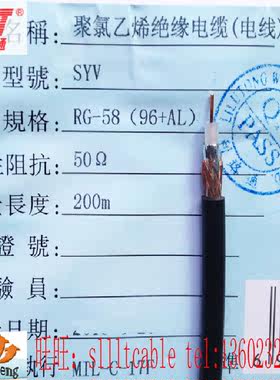 名稱: 聚氯乙烯绝缘电缆(电线)
型號: SYV
規格: RG-58 (96+AL)
阻抗: 50Ω
長度: 200m
證號:
驗員:
日期:
執行 MIL-C-17F 準
旺旺: sllltcable tel:1260232
PASS
eng